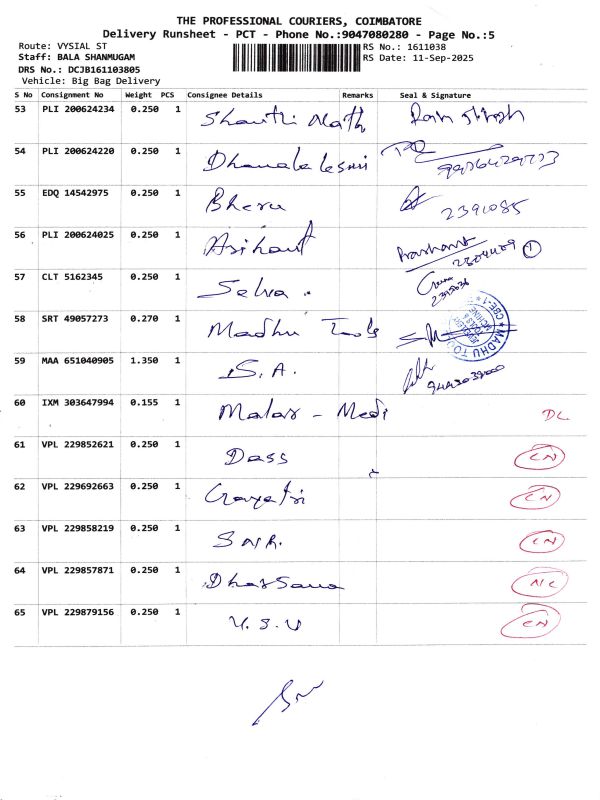 THE PROFESSIONAL COURIERS, COIMBATORE
Delivery Runsheet - PCT - Phone No.:9047080280 - Page No.:5
Route: VYSIAL ST
RS No.: 1611038
Staff: BALA SHANMUGAM
RS Date: 11-Sep-2025
DRS No.: DCJB161103805
Vehicle: Big Bag Delivery
S No Consignment No Weight PCS Consignee Details Remarks Seal & Signature
53 PLI 200624234 0.250 1 Shanthi Nath
54 PLI 200624220 0.250 1 Dhanalalesmi
55 EDQ 14542975 0.250 1 Bheru 2391085
56 PLI 200624025 0.250 1 Arihant Prashant 1
57 CLT 5162345 0.250 1 Selva .
58 SRT 49057273 0.270 1 Madhu Tools MADHU CBE-1
59 MAA 651040905 1.350 1 S.A.
60 IXM 303647994 0.155 1 Malar - Medi DL
61 VPL 229852621 0.250 1 Dass CN
62 VPL 229692663 0.250 1 Gayatri CN
63 VPL 229858219 0.250 1 CN
64 VPL 229857871 0.250 1 Dharsana NC
65 VPL 229879156 0.250 1 V.S.V CN